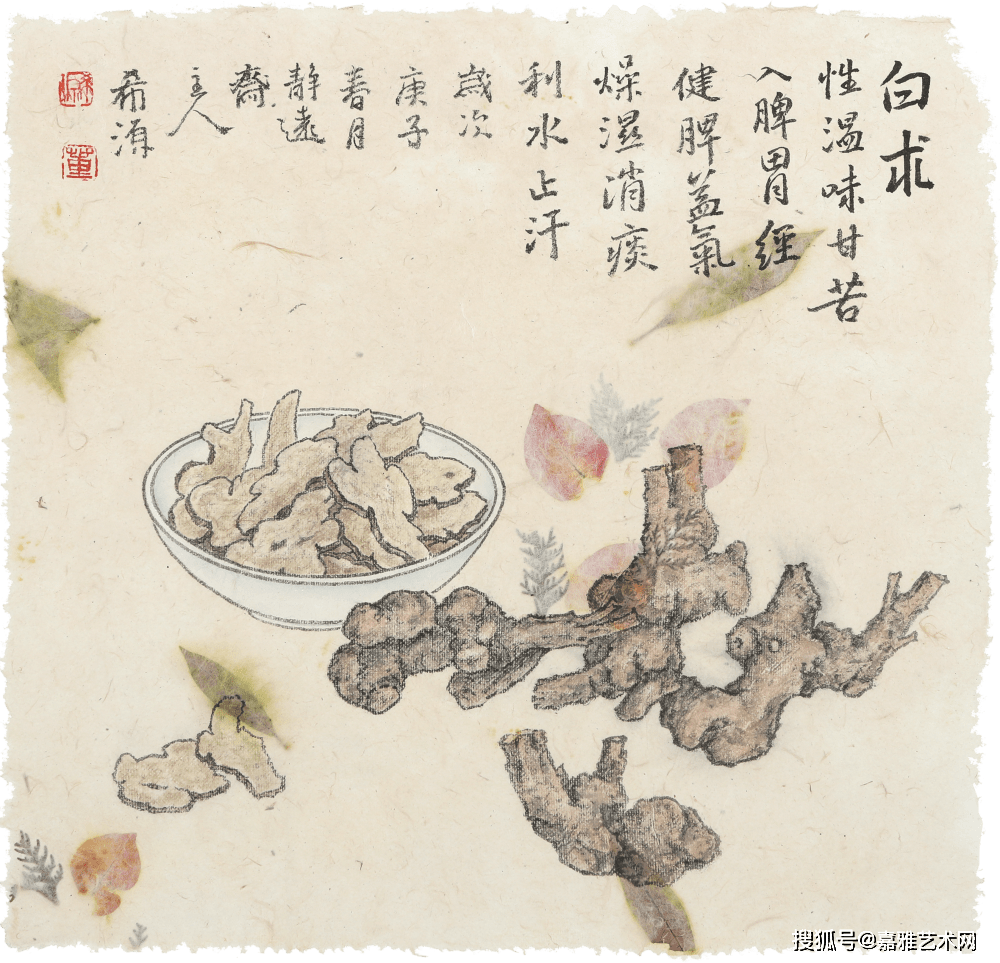 白朮
性温味甘苦
入脾胃經
健脾益氣
燥濕消痰
利水止汗
歲次
庚子
春月
静遠
齋
主人
希源
董
搜狐号@嘉雅艺术网